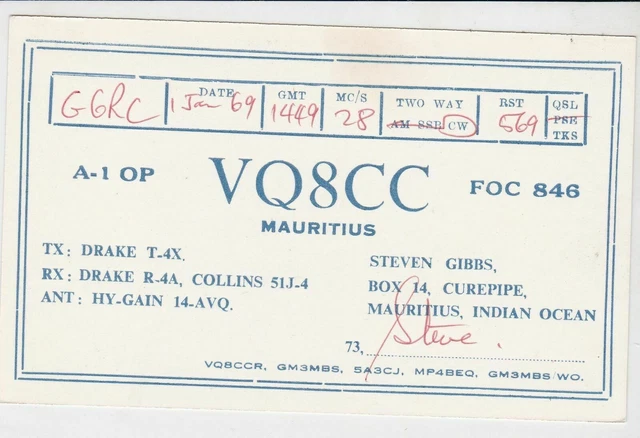 G6RC
DATE
1 Jan 69
GMT
1449
MC/S
28
TWO WAY
AM SSB CW
RST
569
QSL
PSE
TKS
A-1 OP
VQ8CC
FOC 846
MAURITIUS
TX: DRAKE T-4X.
RX: DRAKE R-4A, COLLINS 51J-4
ANT: HY-GAIN 14-AVQ.
STEVEN GIBBS,
BOX 14, CUREPIPE,
MAURITIUS, INDIAN OCEAN
Steve.
73,
VQ8CCR, GM3MBS, 5A3CJ, MP4BEQ, GM3MBS/WO.